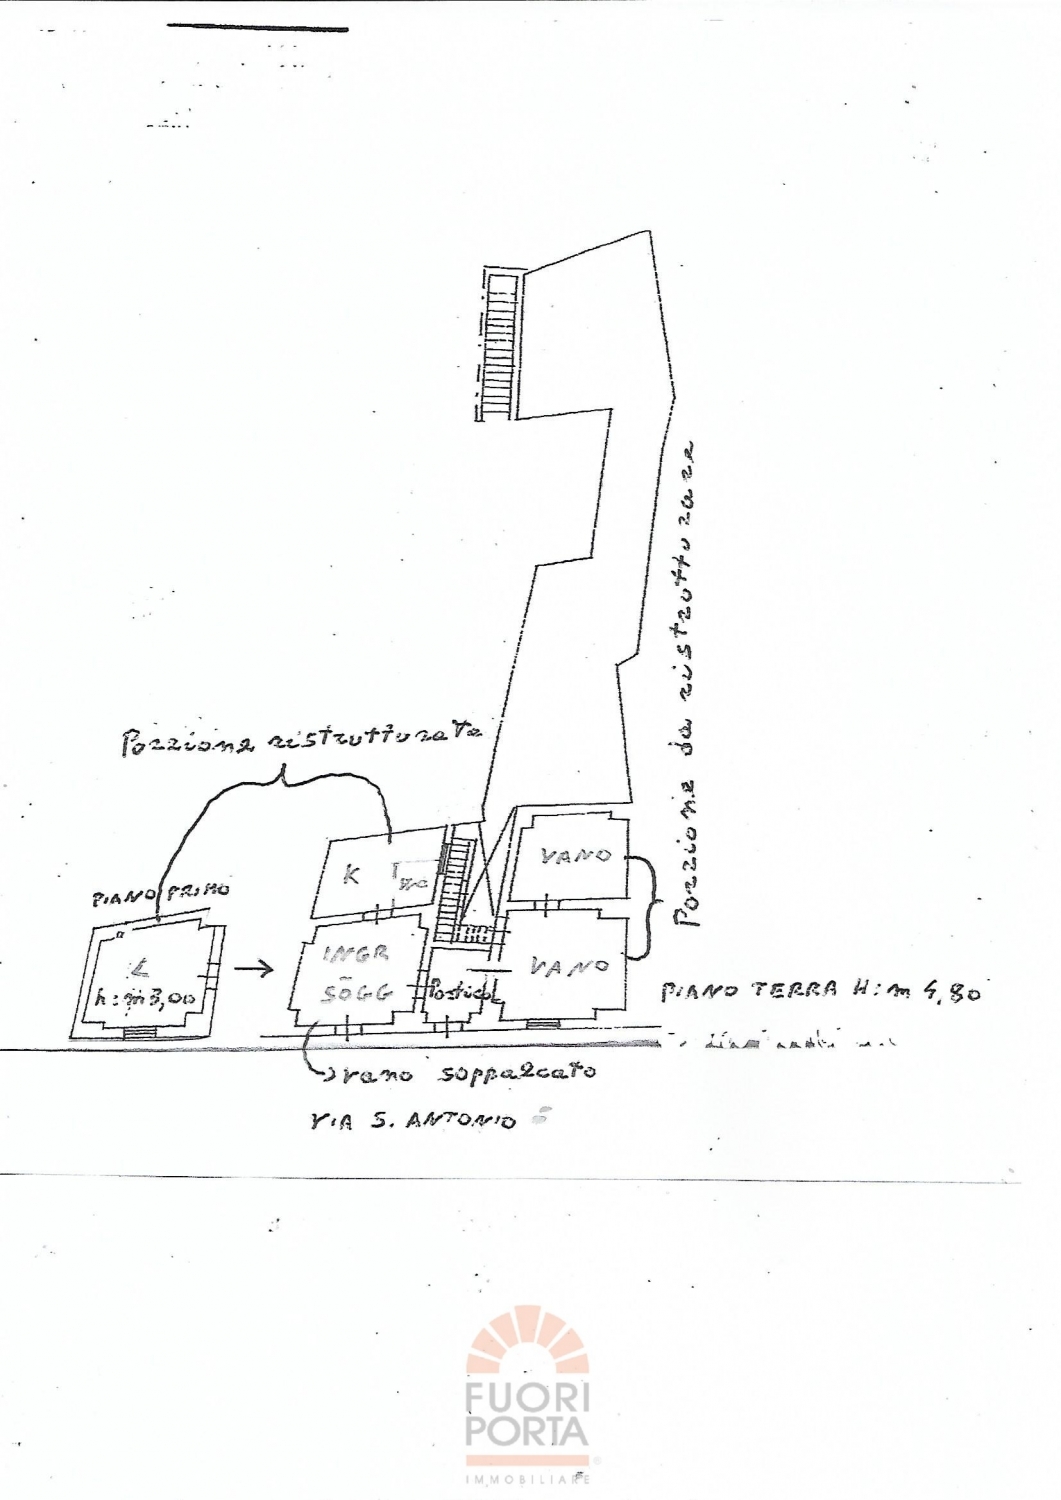 Porzione ristrutturata
Porzione da ristrutturare
K
VANO
PIANO PRIMO
L
h: m 3,00
INGR
SOGG
Portico
VANO
PIANO TERRA H: m 4,80
vano soppalcato
VIA S. ANTONIO
FUORI
PORTA
IMMOBILIARE